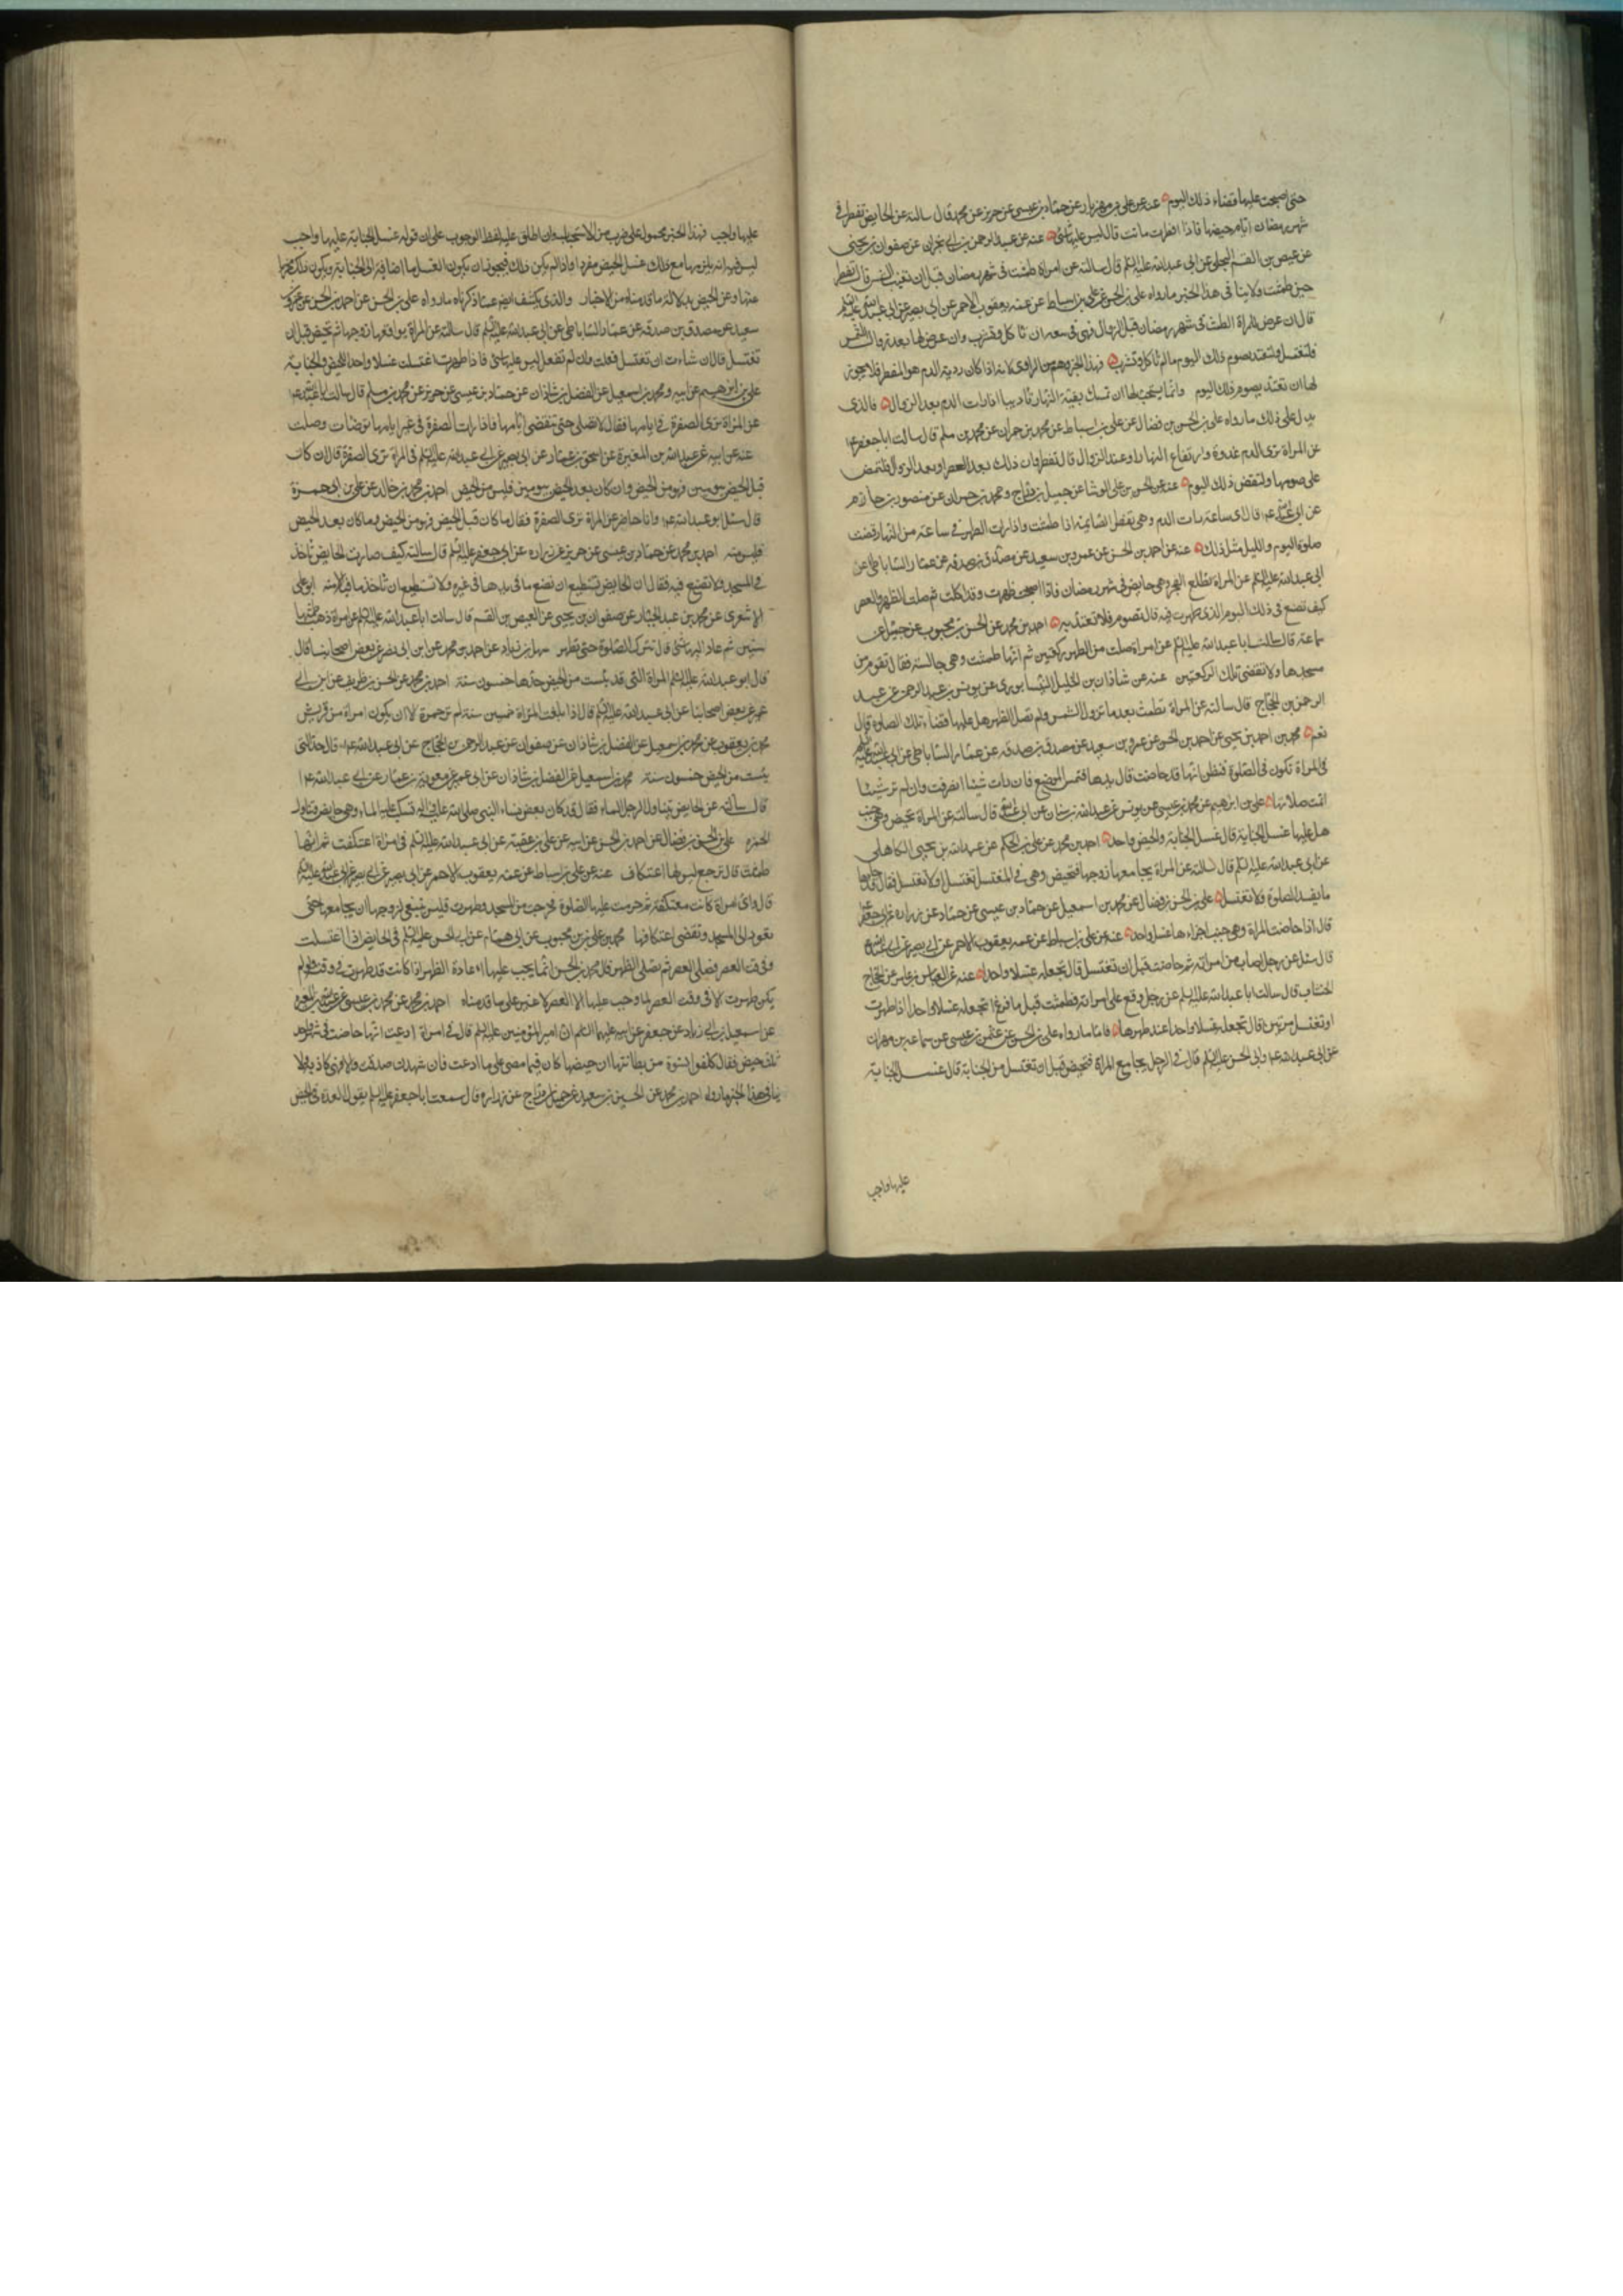 حتى اصبحت عليها قضاء ذلك اليوم عنه عن على بن مهزيار عن حماد بن عيسى عن حريز عن محمد قال سالته عن الحايض تفطر في
شهر رمضان ايام حيضها فاذا افطرت ماتت قال ليس عليها شئ عنه عن عبد الرحمن بن ابي نجران عن صفوان بن يحيى
عن عيص بن القسم البجلى عن ابى عبدالله عليه السلم قال سالته عن امراة طمثت فى شهر رمضان قبل ان تغيب الشمس قال تفطر
حين طمثت ولا ينا فى هذا الخبر مارواه على بن الحسن عن على بن اسباط عن عمه يعقوب الاحمر عن ابى بصير عن ابى عبدالله عليه السلم
قال ان عرض للمراة الطمث فى شهر رمضان قبل الزوال فهى فى سعة ان تاكل وتشرب وان عرض لها بعد زوال الشمس
فلتغتسل ولتعتد بصوم ذلك اليوم مالم تاكل وتشرب فهذا الخبر وهم من الراوى لانه اذا كان روية الدم هو المفطر فلا يجوز
لها ان تعتد بصوم ذلك اليوم وانما يستحب لها ان تمسك بقية النهار تاديبا اذا رات الدم بعد الزوال فالذى
يدل على ذلك مارواه على بن الحسن بن فضال عن على بن اسباط عن محمد بن حمران عن محمد بن مسلم قال سالت اباجعفر ع
عن المراة ترى الدم غدوة او ارتفاع النهار او عند الزوال قال تفطر وان كان ذلك بعد العصر او بعد الزوال فلتمض
على صومها ولتقض ذلك اليوم عنه عن الحسن بن على الوشا عن جميل بن دراج ومحمد بن حمران عن منصور بن حازم
عن ابى عبدالله ع قال اى ساعة رات الدم وهى تفطر الصايمة اذا طمثت واذا رات الطهر فى ساعة من النهار قضت
صلوة اليوم والليل مثل ذلك عنه عن احمد بن الحسن عن عمرو بن سعيد عن مصدق بن صدقه عن عمار الساباطى عن
ابى عبدالله عليه السلم عن المراة تطلع الفجر وهى حايض فى شهر رمضان فاذا اصبحت طهرت وقد اكلت ثم صلت الظهر والعصر
كيف تصنع فى ذلك اليوم الذى طهرت فيه قال تصوم فلا تعتد به احمد بن محمد عن الحسن بن محبوب عن جميل عن
سماعة قال سالت ابا عبدالله عليه السلم عن امراة صلت من الظهر ركعتين ثم انها طمثت وهى جالسة فقال تقوم من
مسجدها ولا تقضى تلك الركعتين عنه عن شاذان بن الخليل النيسابورى عن يونس بن عبد الرحمن عن عبد
الرحمن بن الحجاج قال سالته عن المراة تطمث بعد ما تزول الشمس ولم تصل الظهر هل عليها قضاء تلك الصلوة قال
نعم محمد بن احمد بن يحيى عن احمد بن الحسن عن عمرو بن سعيد عن مصدق بن صدقه عن عمار الساباطى عن ابى عبدالله عليه السلم
فى المراة تكون فى الصلوة فتظن انها قد حاضت قال تدخل يدها فتمس الموضع فان رات شيئا انصرفت وان لم تر شيئا
اتمت صلاتها على بن ابرهيم عن محمد بن عيسى عن يونس عن عبدالله بن سنان عن ابى عبدالله قال سالته عن المراة تحيض وهى جنب
هل عليها غسل الجنابة قال غسل الجنابة والحيض واحد احمد بن محمد عن على بن الحكم عن عبدالله بن يحيى الكاهلى
عن ابى عبدالله عليه السلم قال سالته عن المراة يجامعها زوجها فتحيض وهى فى المغتسل تغتسل او لا تغتسل فقال قد جاءها
ما يفسد الصلوة فلا تغتسل على بن الحسن بن فضال عن محمد بن اسمعيل عن حماد بن عيسى عن حماد عن زراره عن ابى جعفر ع
قال اذا حاضت المراة وهى جنب اجزاءها غسل واحد عنه عن على بن اسباط عن عمه يعقوب الاحمر عن ابى بصير عن ابى عبدالله ع
قال سئل عن رجل اصاب من امراته ثم حاضت قبل ان تغتسل قال تجعله غسلا واحدا عنه عن العباس بن عامر عن حجاج
الخشاب قال سالت ابا عبدالله عليه السلم عن رجل وقع على امراته فطمثت قبل ما فرغ ا تجعله غسلا واحدا اذا طهرت
او تغتسل مرتين قال تجعله غسلا واحدا عند طهرها فاما مارواه على بن الحسن عن عثمن بن عيسى عن سماعه بن مهران
عن ابى عبدالله ع وابى الحسن عليه السلم قالا فى الرجل يجامع المراة فتحيض قبل ان تغتسل من الجنابة قال غسل الجنابة
عليها واجب
عليها واجب فهذا الخبر محمول على ضرب من الاستحباب وان اطلق عليه لفظ الوجوب على ان قوله غسل الجنابة عليها واجب
ليس فيه انه يلزمها مع ذلك غسل الحيض مفردا واذا لم يكن ذلك فيجوز ان يكون الغسل مما اضافة الى الجنابة ويكون ذلك مجزيا
عنها وعن الحيض بدلالة ما قدمناه من الاخبار والذى يكشف ايضا عما ذكرناه مارواه على بن الحسن عن احمد بن الحسن عن عمرو بن
سعيد عن مصدق بن صدقه عن عمار الساباطى عن ابى عبدالله عليه السلم قال سالته عن المراة يواقعها زوجها ثم تحيض قبل ان
تغتسل قال ان شاءت ان تغتسل فعلت وان لم تفعل ليس عليها شئ فاذا طهرت اغتسلت غسلا واحدا للحيض والجنابة
على بن ابرهيم عن ابيه ومحمد بن اسمعيل عن الفضل بن شاذان عن حماد بن عيسى عن حريز عن محمد بن مسلم قال سالت ابا عبدالله ع
عن المراة ترى الصفرة فى ايامها فقال لا تصلى حتى تنقضى ايامها فاذا رات الصفرة فى غير ايامها توضات وصلت
عنه عن ابيه عن عبدالله بن المغيرة عن اسحق بن عمار عن ابى بصير عن ابى عبدالله عليه السلم فى المراة ترى الصفرة قال ان كان
قبل الحيض بيومين فهو من الحيض وان كان بعد الحيض بيومين فليس من الحيض احمد بن محمد بن خالد عن على بن ابى حمزة
قال سئل ابو عبدالله ع وانا حاضر عن المراة ترى الصفرة فقال ما كان قبل الحيض فهو من الحيض وما كان بعد الحيض
فليس منه احمد بن محمد عن حماد بن عيسى عن حريز عن زراره عن ابى جعفر عليه السلم قال سالته كيف صارت الحايض تاخذ
ما فى المسجد ولا تضع فيه فقال لان الحايض تستطيع ان تضع ما فى يدها فى غيره ولا تستطيع ان تاخذ ما فيه الا منه ابو على
الاشعرى عن محمد بن عبد الجبار عن صفوان بن يحيى عن العيص بن القسم قال سالت ابا عبدالله عليه السلم عن امراة ذهب طمثها
سنين ثم عاد اليها شئ قال تترك الصلوة حتى تطهر سهل بن زياد عن احمد بن محمد عن ابن ابى نصر عن بعض اصحابنا قال
قال ابو عبدالله عليه السلم المراة التى قد يئست من الحيض حدها خمسون سنة احمد بن محمد عن الحسن بن ظريف عن ابن ابى
عمير عن بعض اصحابنا عن ابى عبدالله عليه السلم قال اذا بلغت المراة خمسين سنة لم تر حمرة الا ان يكون امراة من قريش
محمد بن يعقوب عن محمد بن اسمعيل عن الفضل بن شاذان عن صفوان عن عبد الرحمن بن الحجاج عن ابى عبدالله ع قال حد التى
يئست من الحيض خمسون سنة محمد بن اسمعيل عن الفضل بن شاذان عن ابى عمير عن معوية بن عمار عن ابى عبدالله ع
قال سالته عن الحايض تناول الرجل الماء فقال قد كان بعض نساء النبى صلى الله عليه واله تسكب عليه الماء وهى حايض وتناوله
الخمرة على بن الحسن بن فضال عن احمد بن الحسن عن ابيه عن على بن عقبة عن ابى عبدالله عليه السلم فى امراة اعتكفت ثم انها
طمثت قال ترجع ليس لها اعتكاف عنه عن على بن اسباط عن عمه يعقوب الاحمر عن ابى بصير عن ابى عبدالله عليه السلم
قال واى امراة كانت معتكفة ثم حرمت عليها الصلوة فخرجت من المسجد وطهرت فليس ينبغى لزوجها ان يجامعها حتى
تعود الى المسجد وتقضى اعتكافها محمد بن على بن محبوب عن ابى همام عن ابى الحسن عليه السلم فى الحايض اذا اغتسلت
فى وقت العصر تصلى العصر ثم تصلى الظهر قال محمد بن الحسن انما يجب عليها اعادة الظهر اذا كانت قد طهرت فى وقته ولم
يكن طهرت الا فى وقت العصر لما وجب عليها الا العصر لا غير على ما قدمناه احمد بن محمد عن محمد بن عيسى عن عبدالله بن المغيره
عن اسمعيل بن ابى زياد عن جعفر عن ابيه عليهما السلم ان امير المؤمنين عليه السلم قال فى امراة ادعت انها حاضت فى شهر واحد
ثلث حيض فقال كلفوا نسوة من بطانتها ان حيضها كان فيما مضى على ما ادعت فان شهدن صدقت والا فهى كاذبة ولا
ينافى هذا الخبر ما رواه احمد بن محمد عن الحسين بن سعيد عن جميل بن دراج عن زراره قال سمعت ابا جعفر عليه السلم يقول العدة والحيض